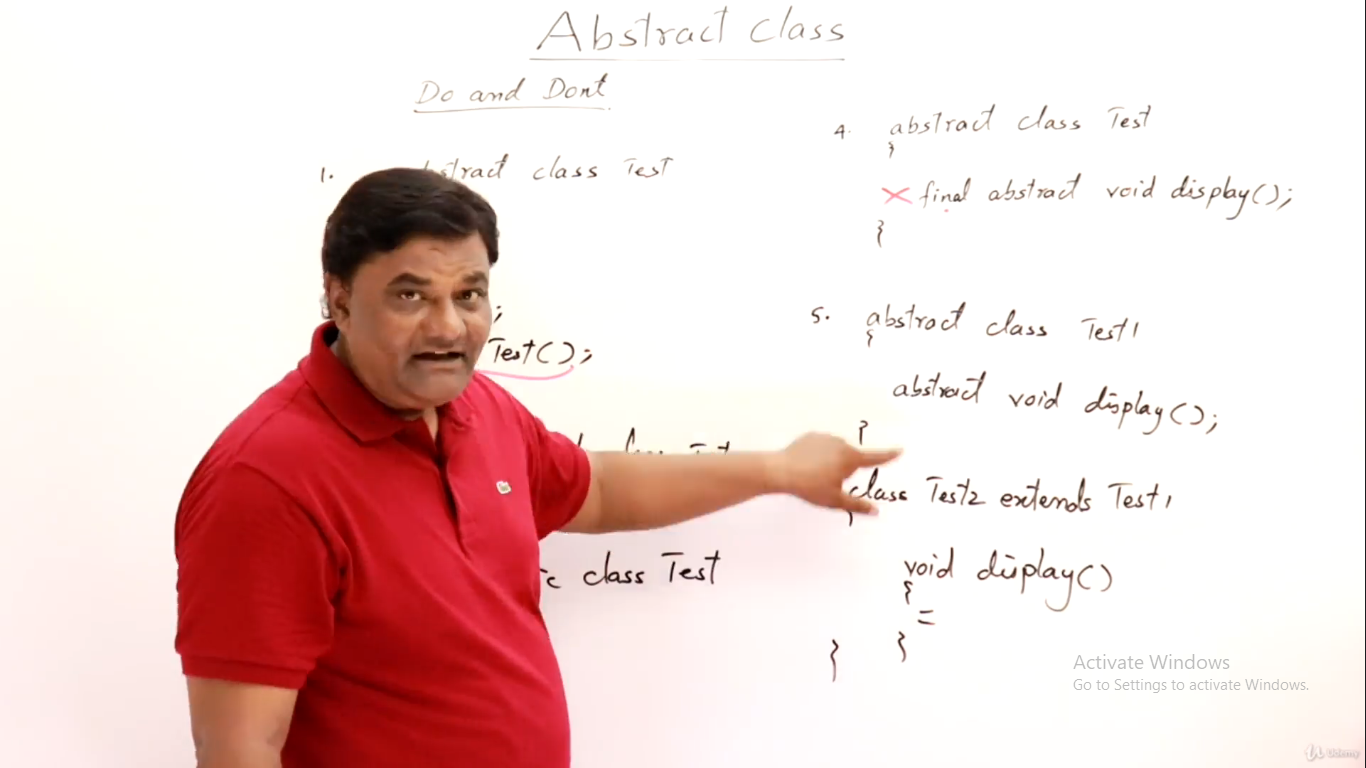 Abstract class
Do and Dont
1. abstract class Test
;
Test();
class Test
class Test
4. abstract class Test
{
× final abstract void display();
}
5. abstract class Test1
{
abstract void display();
}
class Test2 extends Test1
{
void display()
{
=
}
}
Activate Windows
Go to Settings to activate Windows.
Udemy